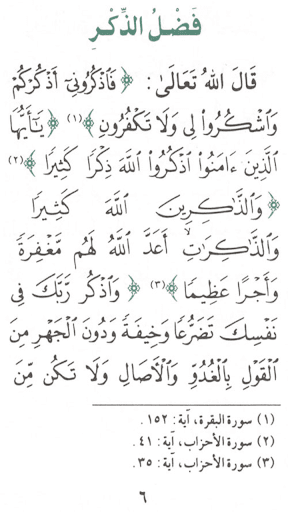 فَضْلُ الذِّكْرِ
قَالَ اللهُ تَعَالَىٰ: ﴿فَاذْكُرُونِىٓ أَذْكُرْكُمْ
وَاشْكُرُوا۟ لِى وَلَا تَكْفُرُونِ﴾(١) ﴿يَـٰٓأَيُّهَا
الَّذِينَ ءَامَنُوا۟ اذْكُرُوا۟ اللَّهَ ذِكْرًا كَثِيرًا﴾(٢)
﴿وَالذَّاكِرِينَ اللَّهَ كَثِيرًا
وَالذَّاكِرَاتِ أَعَدَّ اللَّهُ لَهُم مَّغْفِرَةً
وَأَجْرًا عَظِيمًا﴾(٣) ﴿وَاذْكُر رَّبَّكَ فِى
نَفْسِكَ تَضَرُّعًا وَخِيفَةً وَدُونَ الْجَهْرِ مِنَ
الْقَوْلِ بِالْغُدُوِّ وَالْآصَالِ وَلَا تَكُن مِّنَ
(١) سورة البقرة، آية: ١٥٢.
(٢) سورة الأحزاب، آية: ٤١.
(٣) سورة الأحزاب، آية: ٣٥.
٦